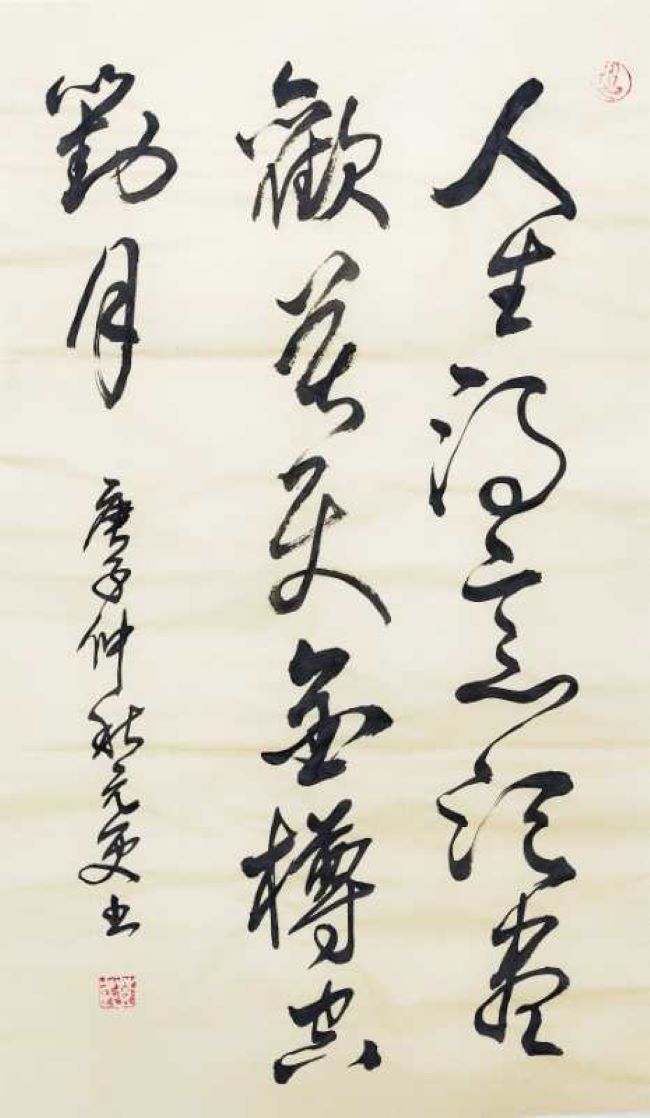 人生得意須盡
歡莫使金樽空
對月
庚子仲秋元更书